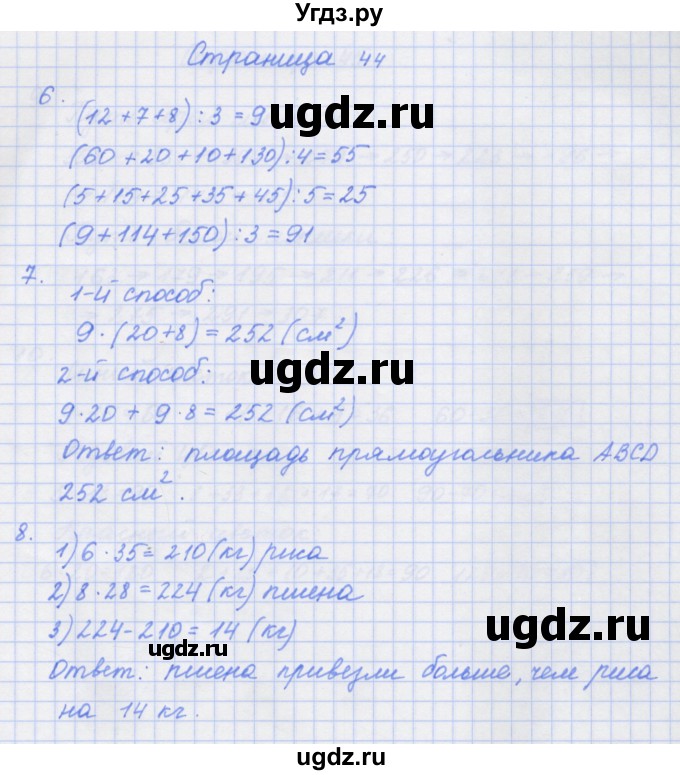 Угдз.ру
Страница 44
6.
(12+7+8):3=9
ugdz.ru
(60+20+10+130):4=55
(5+15+25+35+45):5=25
(9+114+150):3=91
7.
1-й способ:
9·(20+8)=252(см²)
ugdz.ru
2-й способ:
9·20+9·8=252(см²)
Ответ: площадь прямоугольника ABCD
252 см².
8.
1)6·35=210(кг) риса
2)8·28=224(кг) пшена
ugdz.ru
3)224-210=14(кг)
ugdz.ru
Ответ: пшена привезли больше, чем риса
на 14 кг.
ugdz.ru